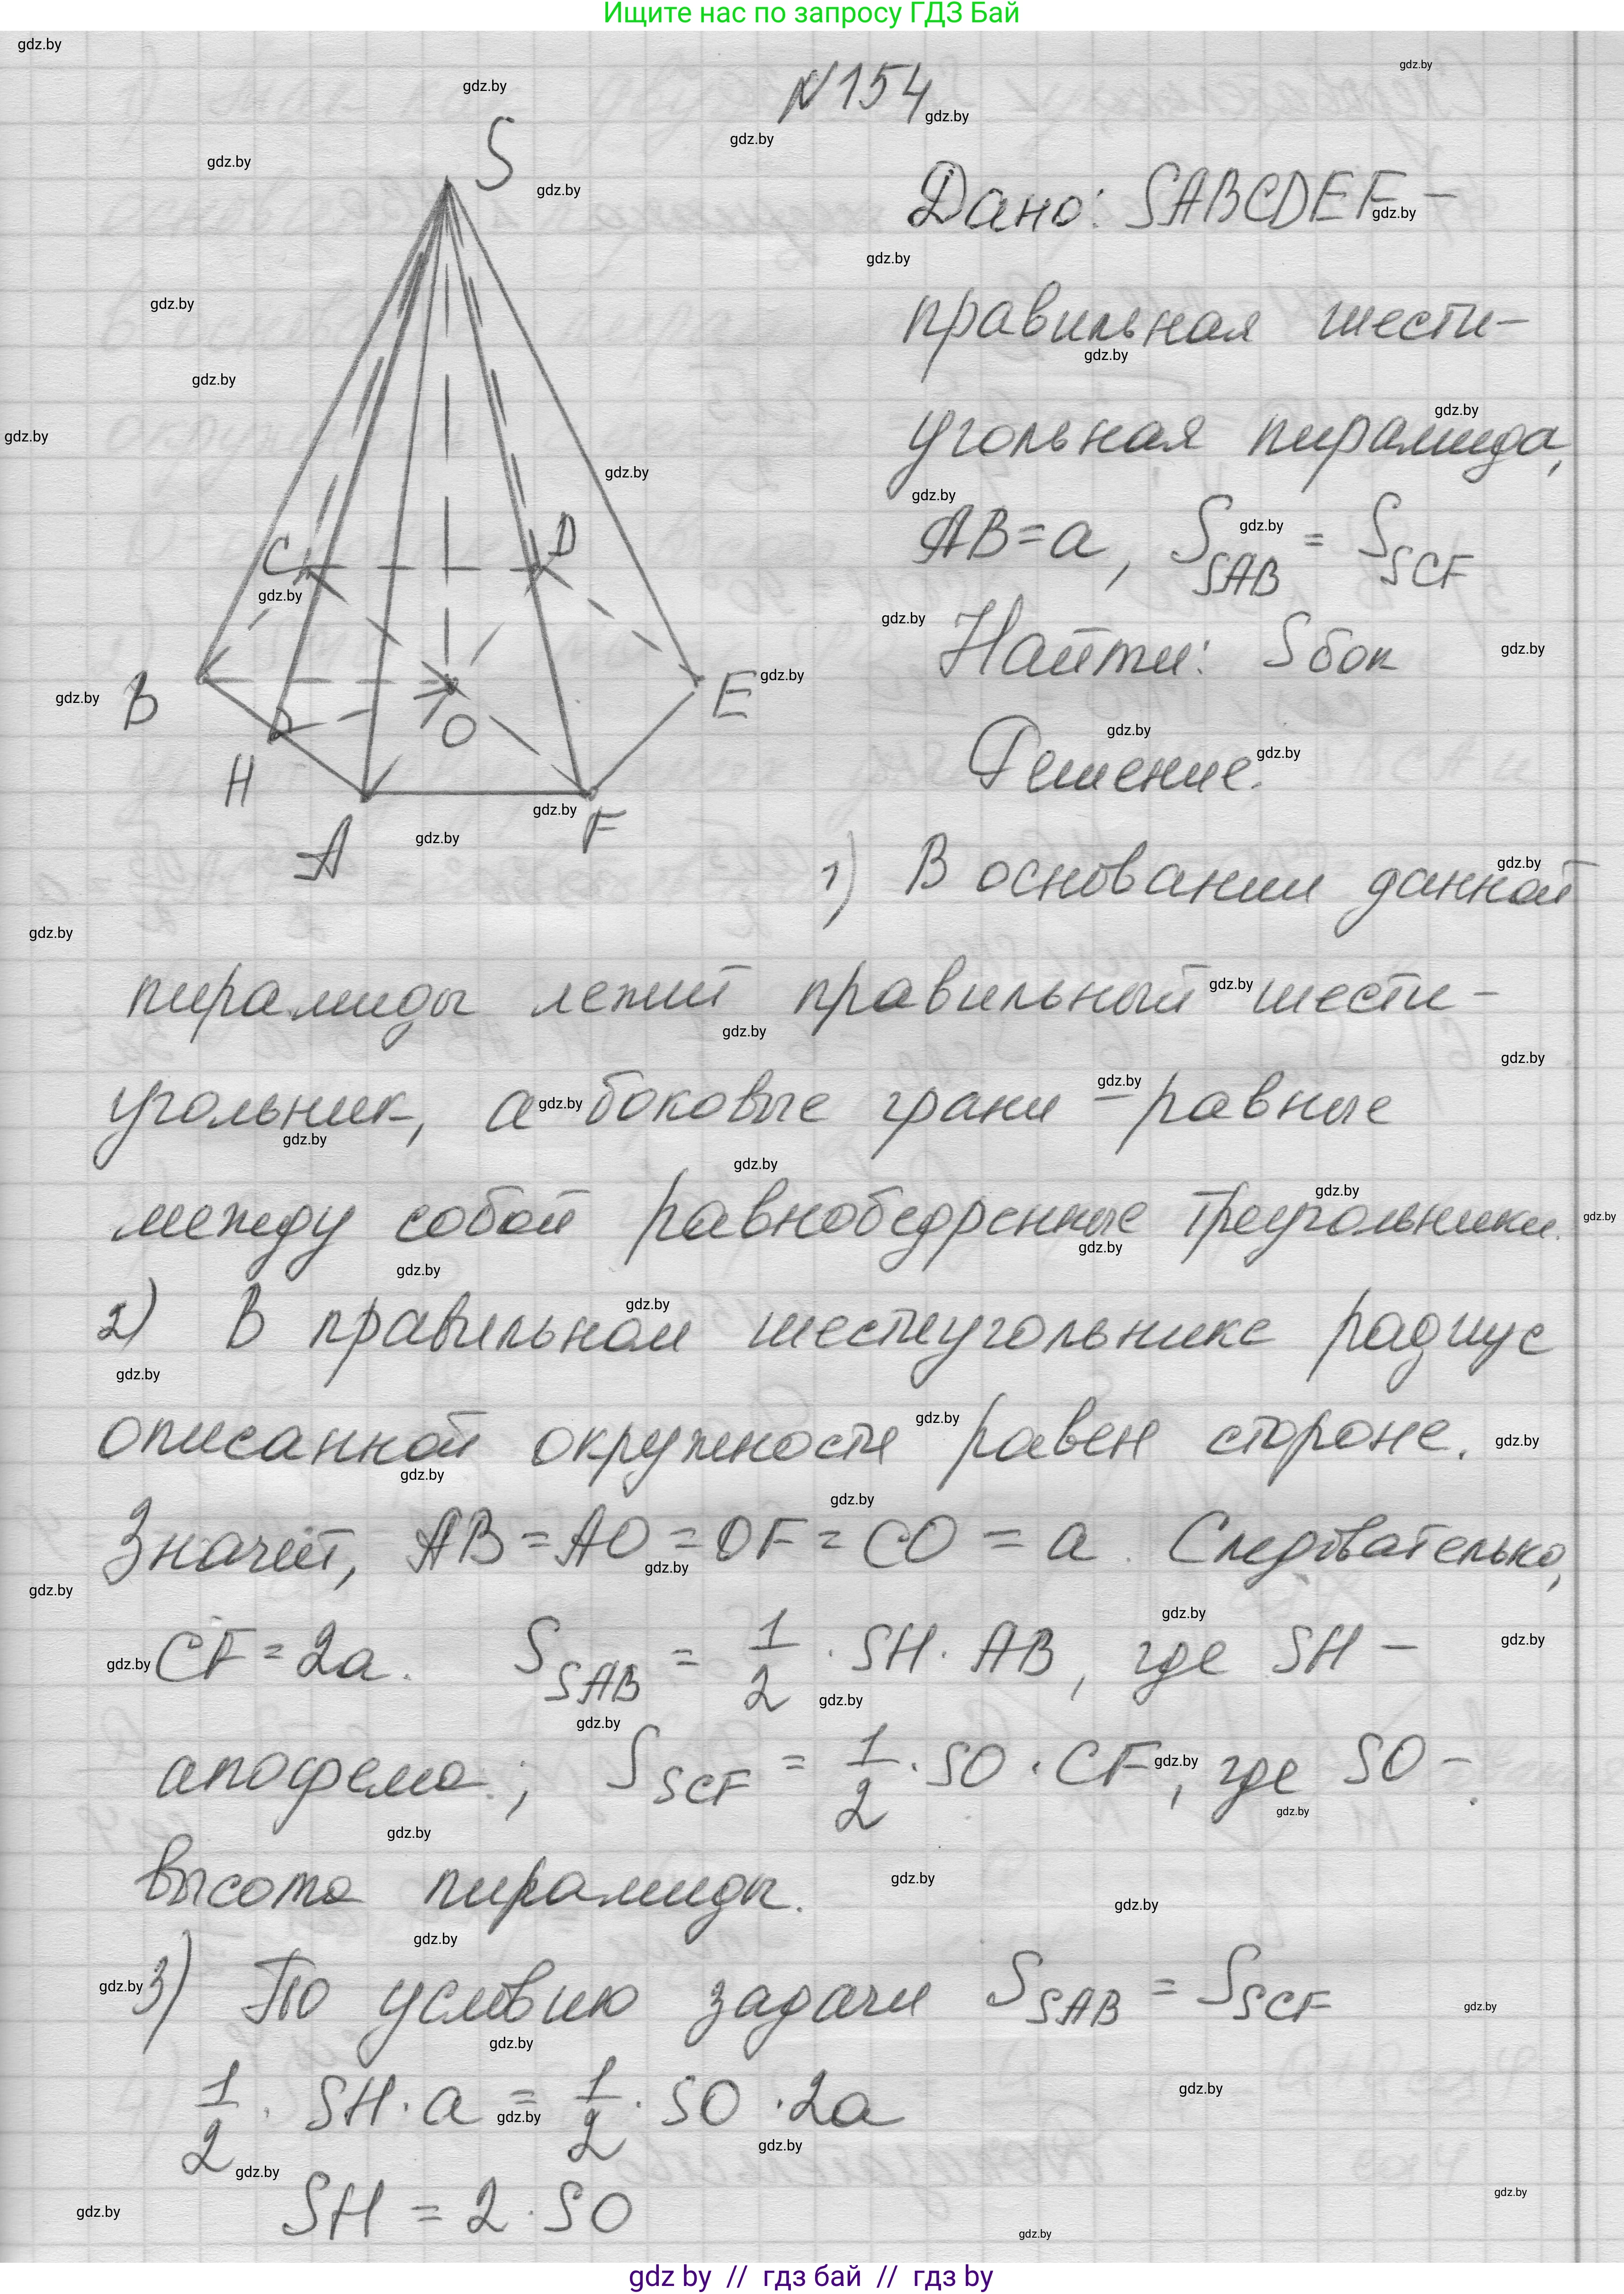 Ищите нас по запросу ГДЗ Бай
N154
S
Дано: SABCDEF –
правильная шести-
угольная пирамида,
AB = a, S SAB = S SCF
Найти: Sбок
C
D
B
E
O
H
A
F
Решение.
1) В основании данной
пирамиды лежит правильный шести-
угольник, а боковые грани – равные
между собой равнобедренные треугольники.
2) В правильном шестиугольнике радиус
описанной окружности равен стороне.
Значит, AB = AO = OF = CO = a. Следовательно,
CF = 2a. S SAB = 1/2 · SH · AB, где SH –
апофема; S SCF = 1/2 · SO · CF, где SO –
высота пирамиды.
3) По условию задачи S SAB = S SCF
1/2 · SH · a = 1/2 · SO · 2a
SH = 2 · SO
gdz by // гдз бай // гдз by